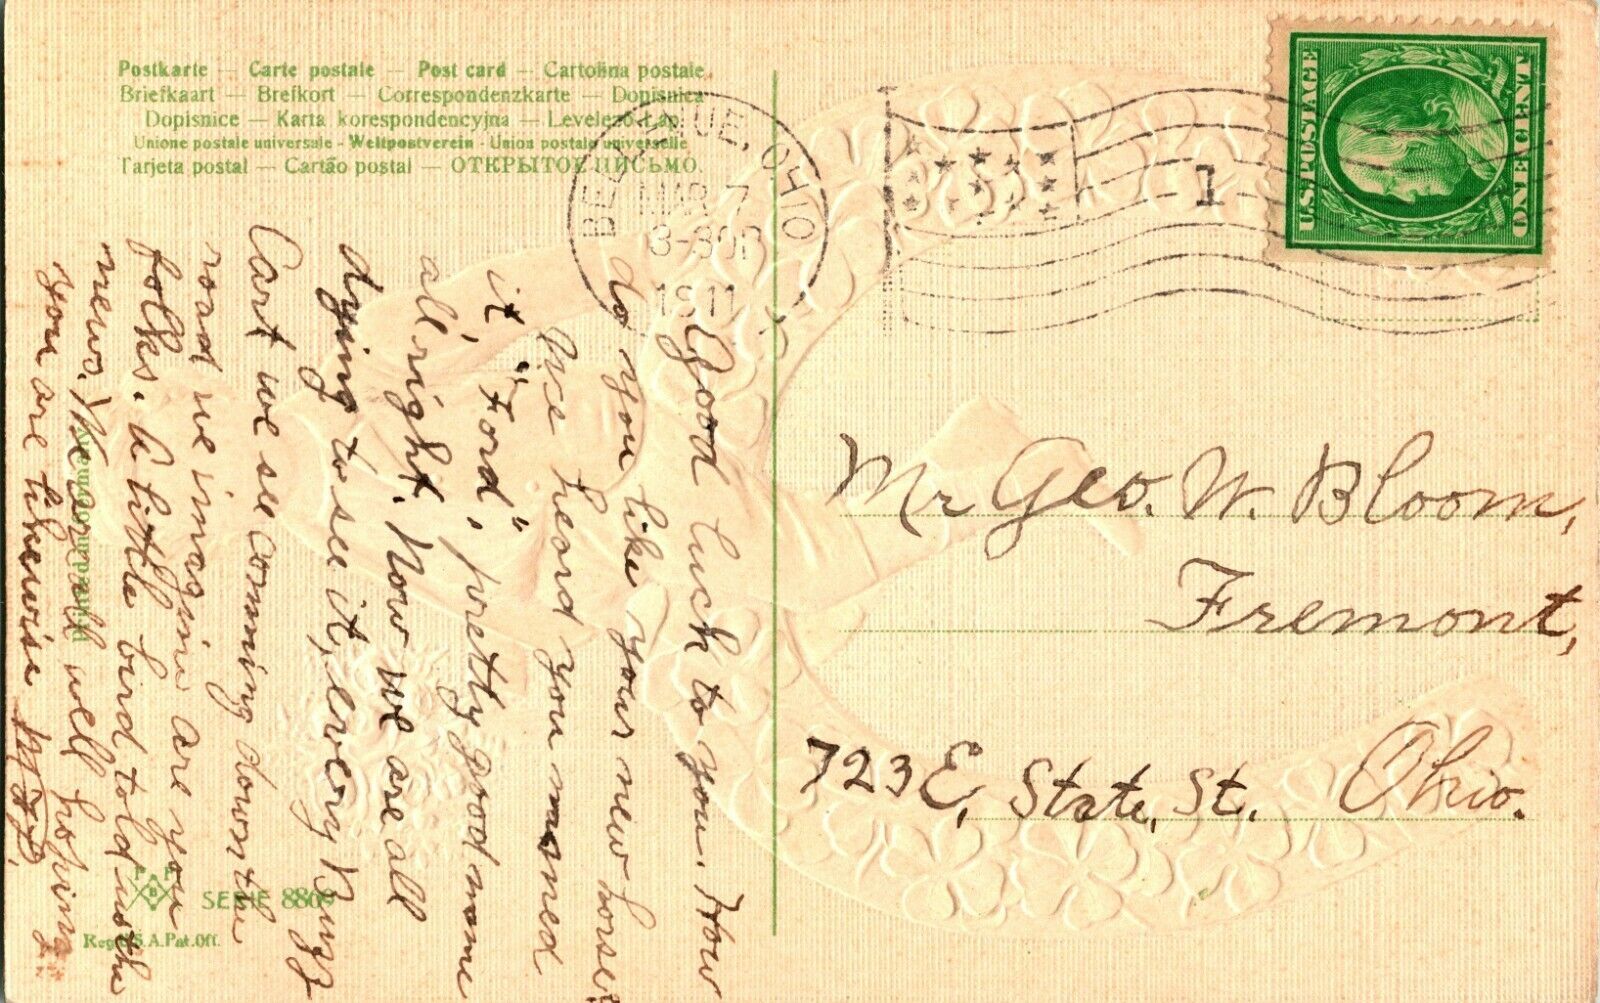 Postkarte — Carte postale — Post card — Cartolina postale.
Briefkaart — Brefkort — Correspondenzkarte — Dopisnica
Dopisnice — Karta korespondencyjna — Levelező-Lap.
Unione postale universale - Weltpostverein - Union postale universelle
Tarjeta postal — Cartão postal — ОТКРЫТОЕ ПИСЬМО.
BELLEVUE, OHIO
MAR 7
3-30P
1911
1
U.S. POSTAGE
ONE CENT
Good luck to you. How
do you like your new horse?
We heard you named
it "Ford", pretty good name
all right. Now we are all
dying to see it, every Buzz
Cart we see coming down the
road we imagine are you
folks. A little bird told us the
news. We are all well hoping
you are likewise
Mr Geo. W. Bloom,
Fremont,
723 E. State, St. Ohio.
SERIE 8869
Reg. U.S.A. Pat. Off.